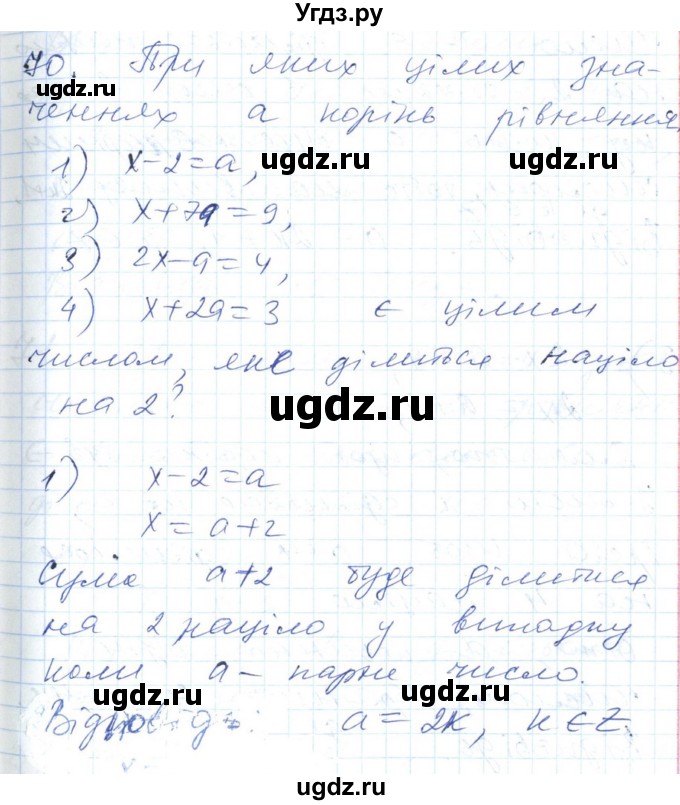 Угдз.ру
70. При яких цілих зна-
ugdz.ru
ченнях а корінь рівняння
1) x-2=a,
ugdz.ru ugdz.ru
2) x+7a=9,
3) 2x-a=4,
4) x+2a=3 є цілим
числом, яке ділиться націло
на 2?
ugdz.ru
1) x-2=a
x=a+2
Сума a+2 буде ділитися
на 2 націло у випадку
коли а - парне число.
ugdz.ru ugdz.ru
Відповідь: a=2k, k∈Z.
ugdz.ru ugdz.ru